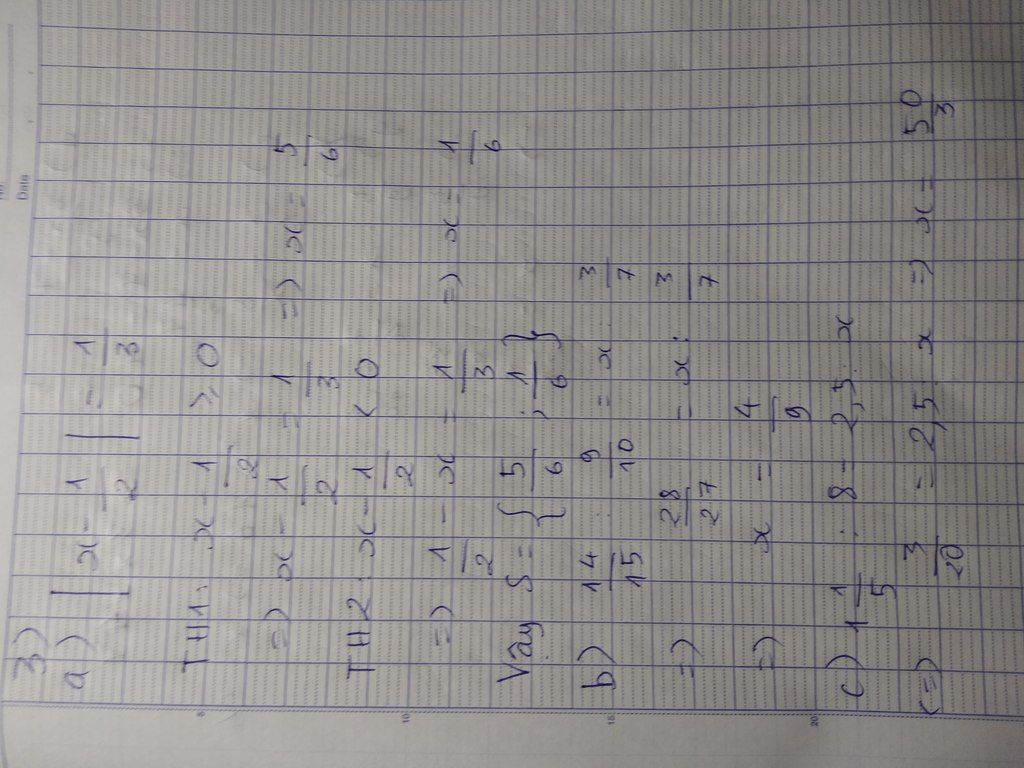 No.
Date
3)
a) | x - 1/2 | = 1/3
TH1: x - 1/2 ⩾ 0
=) x - 1/2 = 1/3 =) x = 5/6
TH2: x - 1/2 < 0
=) 1/2 - x = 1/3 =) x = 1/6
Vậy S = { 5/6 ; 1/6 }
b) 14/15 : 9/10 = x : 3/7
=) 28/27 = x : 3/7
=) x = 4/9
c) 1 1/5 : 8 = 2,5 : x
<=) 3/20 = 2,5 : x =) x = 50/3
5
10
15
20